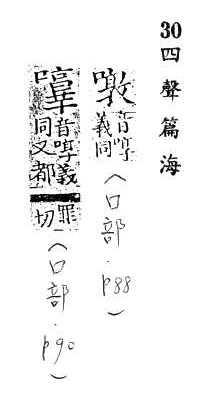 30 四聲篇海
噋 音啍義同 (口部.p88)
音啍義同又都罪切 (口部.p90)